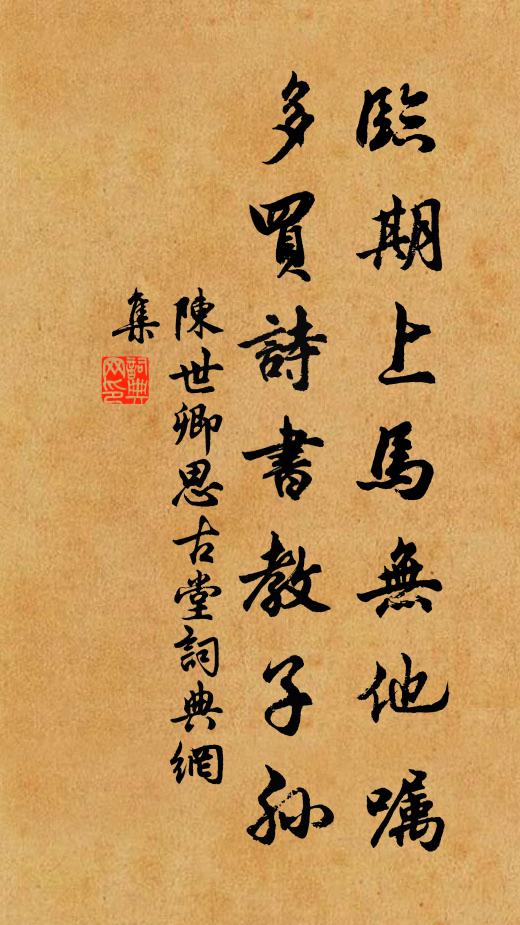 臨期上馬無他嘱
多買詩書教子孫
陳世卿思古堂詞典網
集
詞典
网印